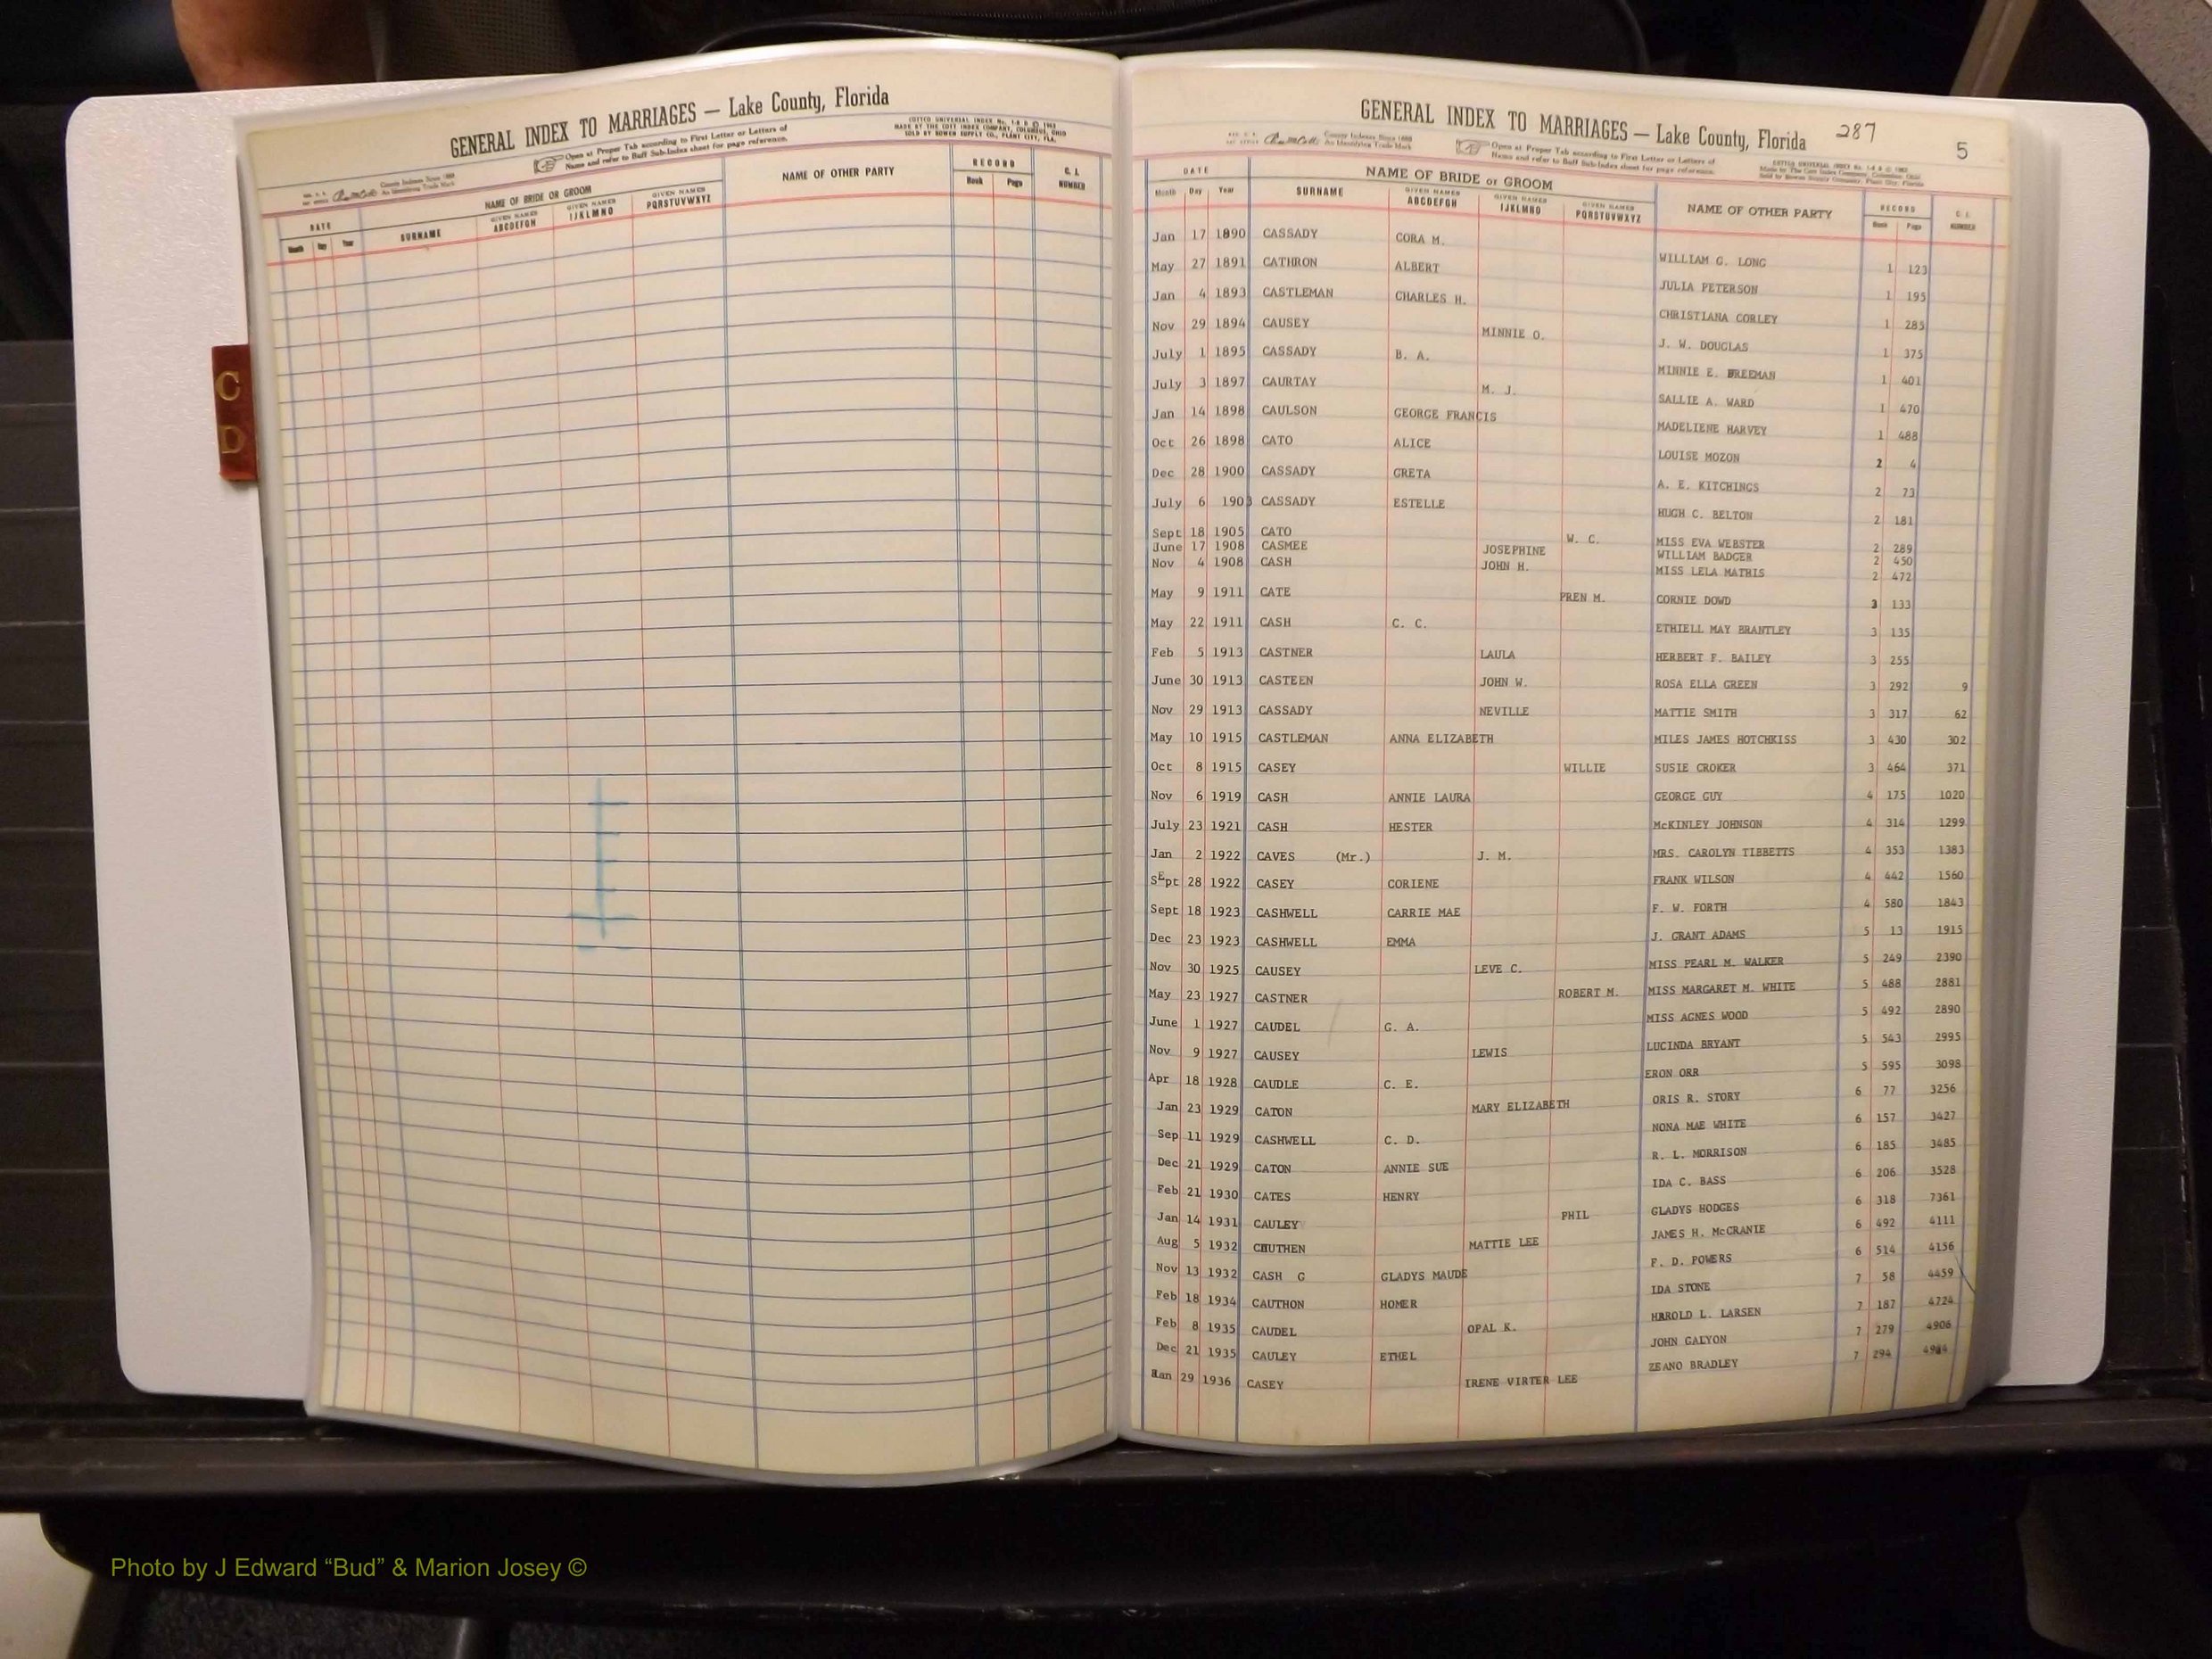 GENERAL INDEX TO MARRIAGES — Lake County, Florida
Open at Proper Tab according to First Letter or Letters of
Name and refer to Buff Sub-Index sheet for page reference.
COTTCO UNIVERSAL INDEX No. 1-A B © 1962
MADE BY THE COTT INDEX COMPANY, COLUMBUS, OHIO
SOLD BY BOWEN SUPPLY CO., PLANT CITY, FLA.
County Indexes Since 1888
An Identifying Trade Mark
DATE NAME OF BRIDE OR GROOM NAME OF OTHER PARTY RECORD C. I. NUMBER
Month Day Year SURNAME GIVEN NAMES ABCDEFGH GIVEN NAMES IJKLMNO GIVEN NAMES PQRSTUVWXYZ Book Page
C
D
GENERAL INDEX TO MARRIAGES — Lake County, Florida 287
5
County Indexes Since 1888
An Identifying Trade Mark
Open at Proper Tab according to First Letter or Letters of
Name and refer to Buff Sub-Index sheet for page reference.
DATE NAME OF BRIDE or GROOM NAME OF OTHER PARTY RECORD C. I. NUMBER
Month Day Year SURNAME GIVEN NAMES ABCDEFGH GIVEN NAMES IJKLMNO GIVEN NAMES PQRSTUVWXYZ Book Page
Jan 17 1890 CASSADY CORA M. WILLIAM G. LONG 1 123
May 27 1891 CATHRON ALBERT JULIA PETERSON 1 195
Jan 4 1893 CASTLEMAN CHARLES H. CHRISTIANA CORLEY 1 285
Nov 29 1894 CAUSEY MINNIE O. J. W. DOUGLAS 1 375
July 1 1895 CASSADY B. A. MINNIE E. BREEMAN 1 401
July 3 1897 CAURTAY M. J. SALLIE A. WARD 1 470
Jan 14 1898 CAULSON GEORGE FRANCIS MADELIENE HARVEY 1 488
Oct 26 1898 CATO ALICE LOUISE MOZON 2 4
Dec 28 1900 CASSADY GRETA A. E. KITCHINGS 2 73
July 6 1903 CASSADY ESTELLE HUGH C. BELTON 2 181
Sept 18 1905 CATO W. C. MISS EVA WEBSTER 2 289
June 17 1908 CASMEE JOSEPHINE WILLIAM BADGER 2 450
Nov 4 1908 CASH JOHN H. MISS LELA MATHIS 2 472
May 9 1911 CATE PREN M. CORNIE DOWD 3 133
May 22 1911 CASH C. C. ETHIELL MAY BRANTLEY 3 135
Feb 5 1913 CASTNER LAULA HERBERT F. BAILEY 3 255
June 30 1913 CASTEEN JOHN W. ROSA ELLA GREEN 3 292 9
Nov 29 1913 CASSADY NEVILLE MATTIE SMITH 3 317 62
May 10 1915 CASTLEMAN ANNA ELIZABETH MILES JAMES HOTCHKISS 3 430 302
Oct 8 1915 CASEY WILLIE SUSIE CROKER 3 464 371
Nov 6 1919 CASH ANNIE LAURA GEORGE GUY 4 175 1020
July 23 1921 CASH HESTER McKINLEY JOHNSON 4 314 1299
Jan 2 1922 CAVES (Mr.) J. M. MRS. CAROLYN TIBBETTS 4 353 1383
SEpt 28 1922 CASEY CORIENE FRANK WILSON 4 442 1560
Sept 18 1923 CASHWELL CARRIE MAE F. W. FORTH 4 580 1843
Dec 23 1923 CASHWELL EMMA J. GRANT ADAMS 5 13 1915
Nov 30 1925 CAUSEY LEVE C. MISS PEARL M. WALKER 5 249 2390
May 23 1927 CASTNER ROBERT M. MISS MARGARET M. WHITE 5 488 2881
June 1 1927 CAUDEL G. A. MISS AGNES WOOD 5 492 2890
Nov 9 1927 CAUSEY LEWIS LUCINDA BRYANT 5 543 2995
Apr 18 1928 CAUDLE C. E. ERON ORR 5 595 3098
Jan 23 1929 CATON MARY ELIZABETH ORIS R. STORY 6 77 3256
Sep 11 1929 CASHWELL C. D. NONA MAE WHITE 6 157 3427
Dec 21 1929 CATON ANNIE SUE R. L. MORRISON 6 185 3485
Feb 21 1930 CATES HENRY IDA C. BASS 6 206 3528
Jan 14 1931 CAULEY PHIL GLADYS HODGES 6 318 7361
Aug 5 1932 CAUTHEN MATTIE LEE JAMES H. McCRANIE 6 492 4111
Nov 13 1932 CASH G GLADYS MAUDE F. D. POWERS 6 514 4156
Feb 18 1934 CAUTHON HOMER IDA STONE 7 58 4459
Feb 8 1935 CAUDEL OPAL K. HAROLD L. LARSEN 7 187 4724
Dec 21 1935 CAULEY ETHEL JOHN GALYON 7 279 4906
Jan 29 1936 CASEY IRENE VIRTER LEE ZEANO BRADLEY 7 294 4984
Photo by J Edward “Bud” & Marion Josey ©